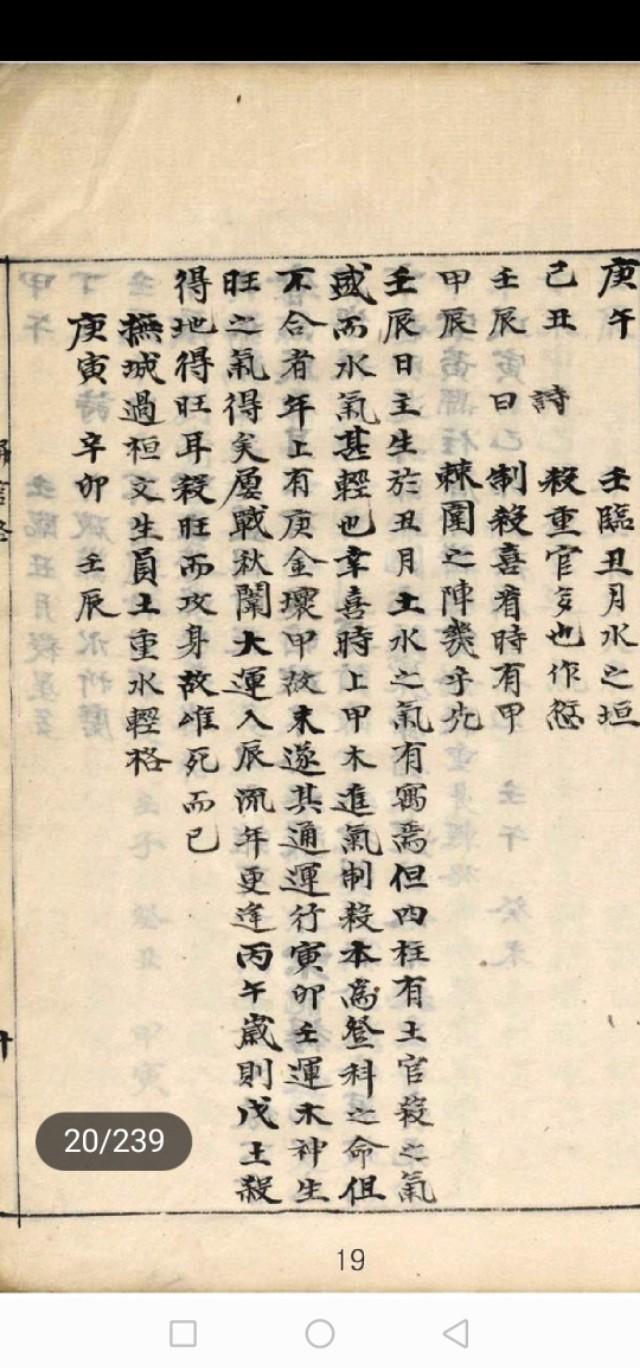 庚午　　　壬臨丑月水之垣
己丑　詩　殺重官多也作愆
壬辰日　制殺喜看時有甲
甲辰　　　棘圍之陣幾乎先
壬辰日主生於丑月土水之氣有寓焉但四柱有土官殺之氣
盛而水氣甚輕也幸喜時上甲木進氣制殺本為登科之命但
不合者年上有庚金壞甲故未遂其通運行寅卯壬運木神生
旺之氣得矣屢戰秋闈大運入辰流年更逢丙午歲則戊土殺
得地得旺耳殺旺而攻身故唯死而已
撫城過桓文生員土重水輕格
庚寅　辛卯　壬辰
20/239
19